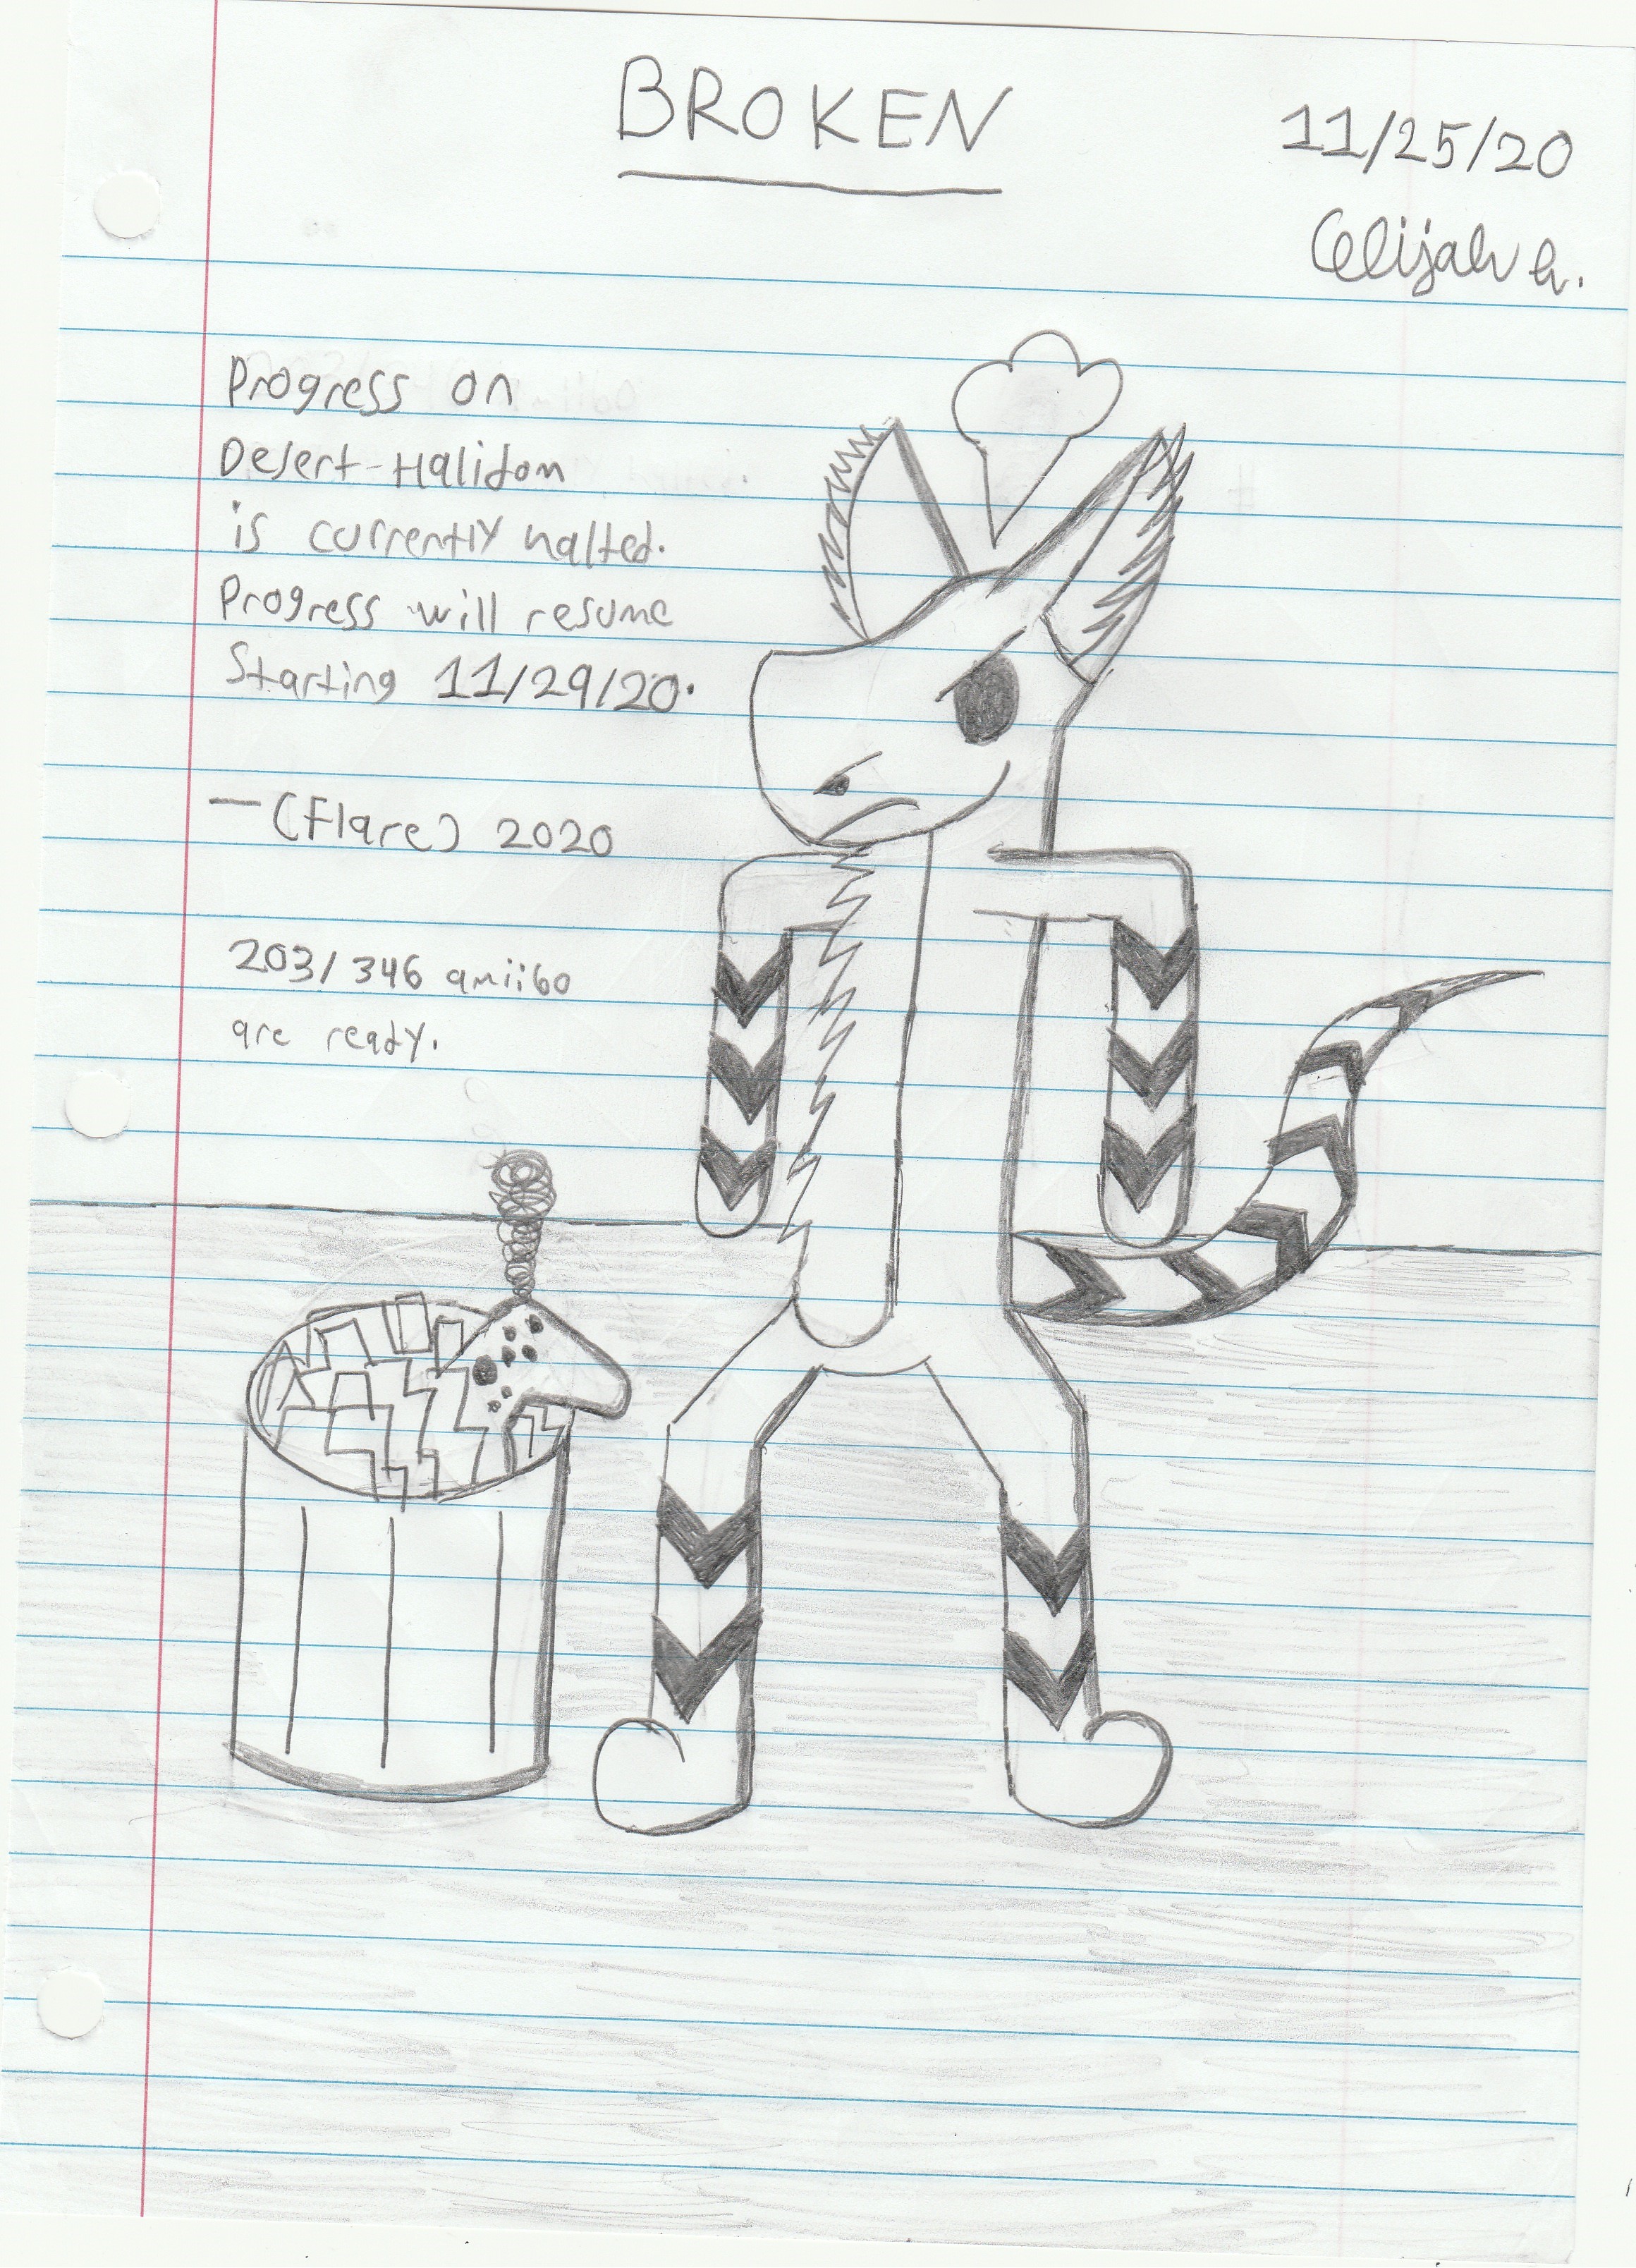 BROKEN
11/25/20
Progress on
Desert-Halidom
is currently halted.
Progress will resume
Starting 11/29/20.
—(Flare) 2020
203/346 amiibo
are ready.